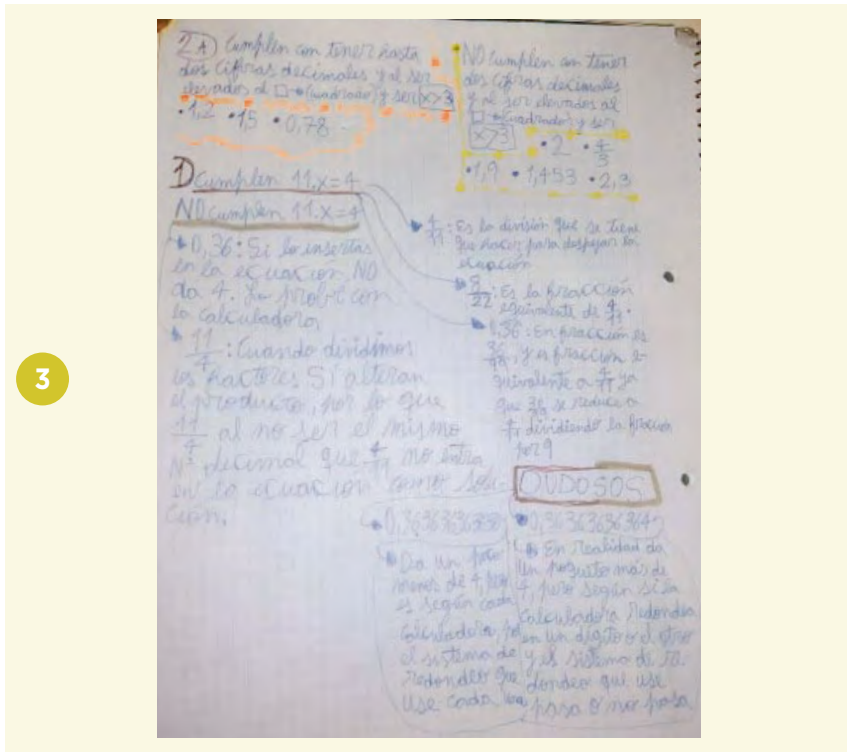 2A) Cumplen con tener hasta
dos cifras decimales y al ser
elevados al □→(cuadrado) y ser x>3
•1,2 •1,5 •0,78
NO cumplen con tener
dos cifras decimales
y al ser elevados al
□→(cuadrado) y ser
x>3 •2 •4/3
•1,9 •1,453 •2,3
1) Cumplen 11.x=4
NO cumplen 11.x=4
0,36: Si lo insertas
en la ecuación NO
da 4. Lo probé con
la calculadora
11/4: Cuando dividimos
los factores SI alteran
el producto, por lo que
11/4 al no ser el mismo
N° decimal que 4/11 no entra
en la ecuación como solu-
ción.
4/11: Es la división que se tiene
que hacer para despejar la
ecuación
8/22: Es la fracción
equivalente de 4/11.
0,36: En fracción es
36/99, y es fracción e-
quivalente a 4/11 ya
que 36/99 se reduce a
4/11 dividiendo la fracción
por 9
DUDOSOS
0,36363636364
Da un poco
menos de 4, pero
es según cada
calculadora, por
el sistema de
redondeo que
use cada una
En realidad da
un poquito más de
4, pero según si la
calculadora redondea
en un dígito o el otro
y el sistema de re-
dondeo que use
pasa o no pasa
3